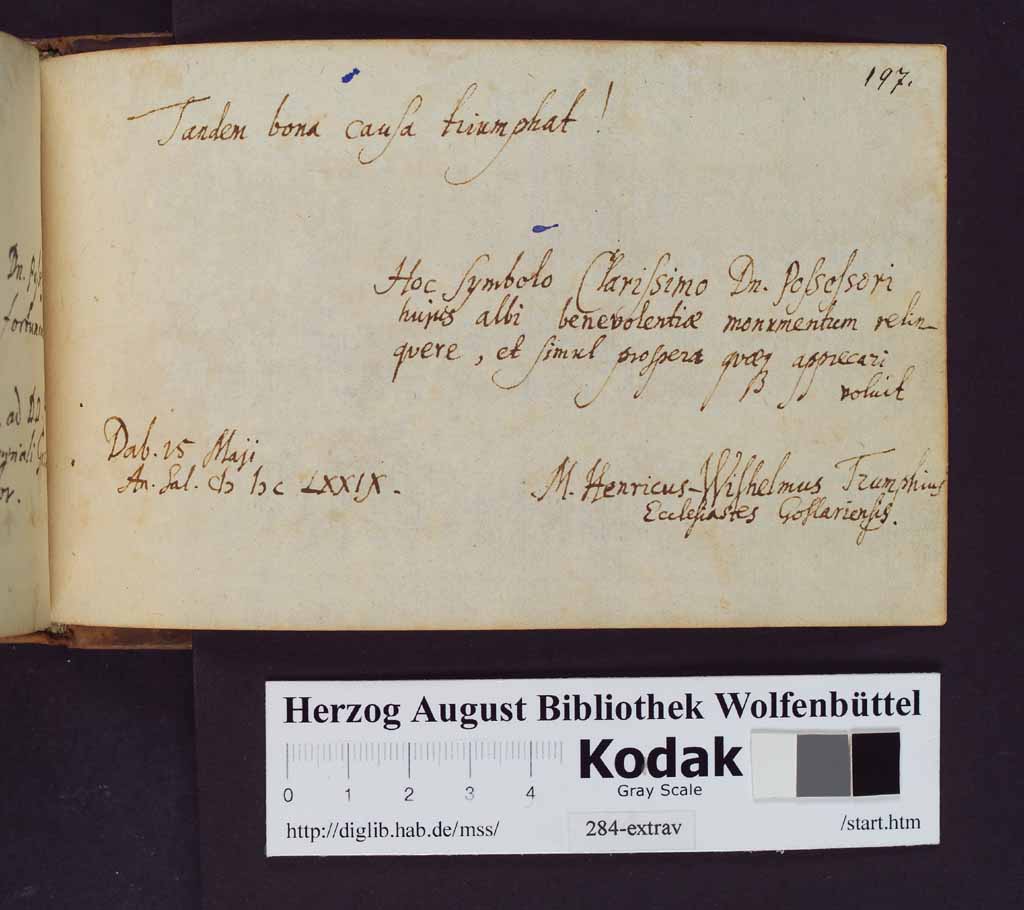 197.
Tanden bona causa triumphat!
Hoc symbolo Clarissimo Dn. Possessori
hujus albi benevolentiæ monumentum relin-
quere, et simul prospera quæq apprecari
voluit
Dab. 15 Maji
An. Sal. LXXIX.
M. Henricus-Wilhelmus Trumphius
Ecclesiastes Goslariensis.
Dn.
ad
Herzog August Bibliothek Wolfenbüttel
Kodak
Gray Scale
0 1 2 3 4
http://diglib.hab.de/mss/ 284-extrav /start.htm